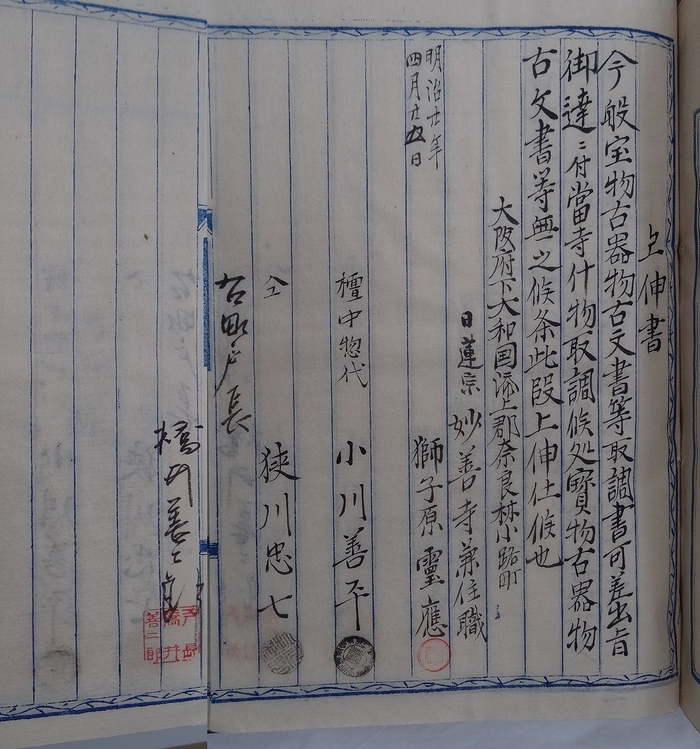 上伸書
今般宝物古器物古文書等取調書可差出旨
御達ニ付當寺什物取調候処寳物古器物
古文書等無之候条此段上伸仕候也
大阪府下大和国添上郡奈良林小路町
日蓮宗 妙善寺兼住職
獅子原靈應
明治廿年
四月廿五日
檀中惣代 小川善平
仝 狭川忠七
右町戸長
橋井善二郎
戸長
橋井
善二郎